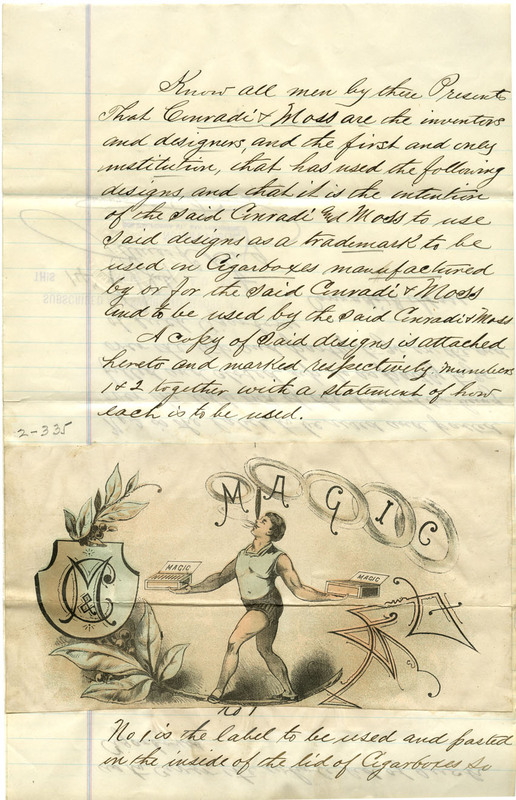 Know all men by these Presents
That Conradi & Moss are the inventors
and designers, and the first and only
institution, that has used the following
designs, and that it is the intention
of the said Conradi and Moss to use
said designs as a trademark to be
used in Cigarboxes manufactured
by or for the said Conradi & Moss
and to be used by the said Conradi & Moss
A copy of said designs is attached
hereto and marked respectively numbers
1 & 2 together with a statement of how
each is to be used.
2-335
MAGIC
MAGIC
MAGIC
No 1
No 1 is the label to be used and pasted
on the inside of the lid of Cigarboxes so